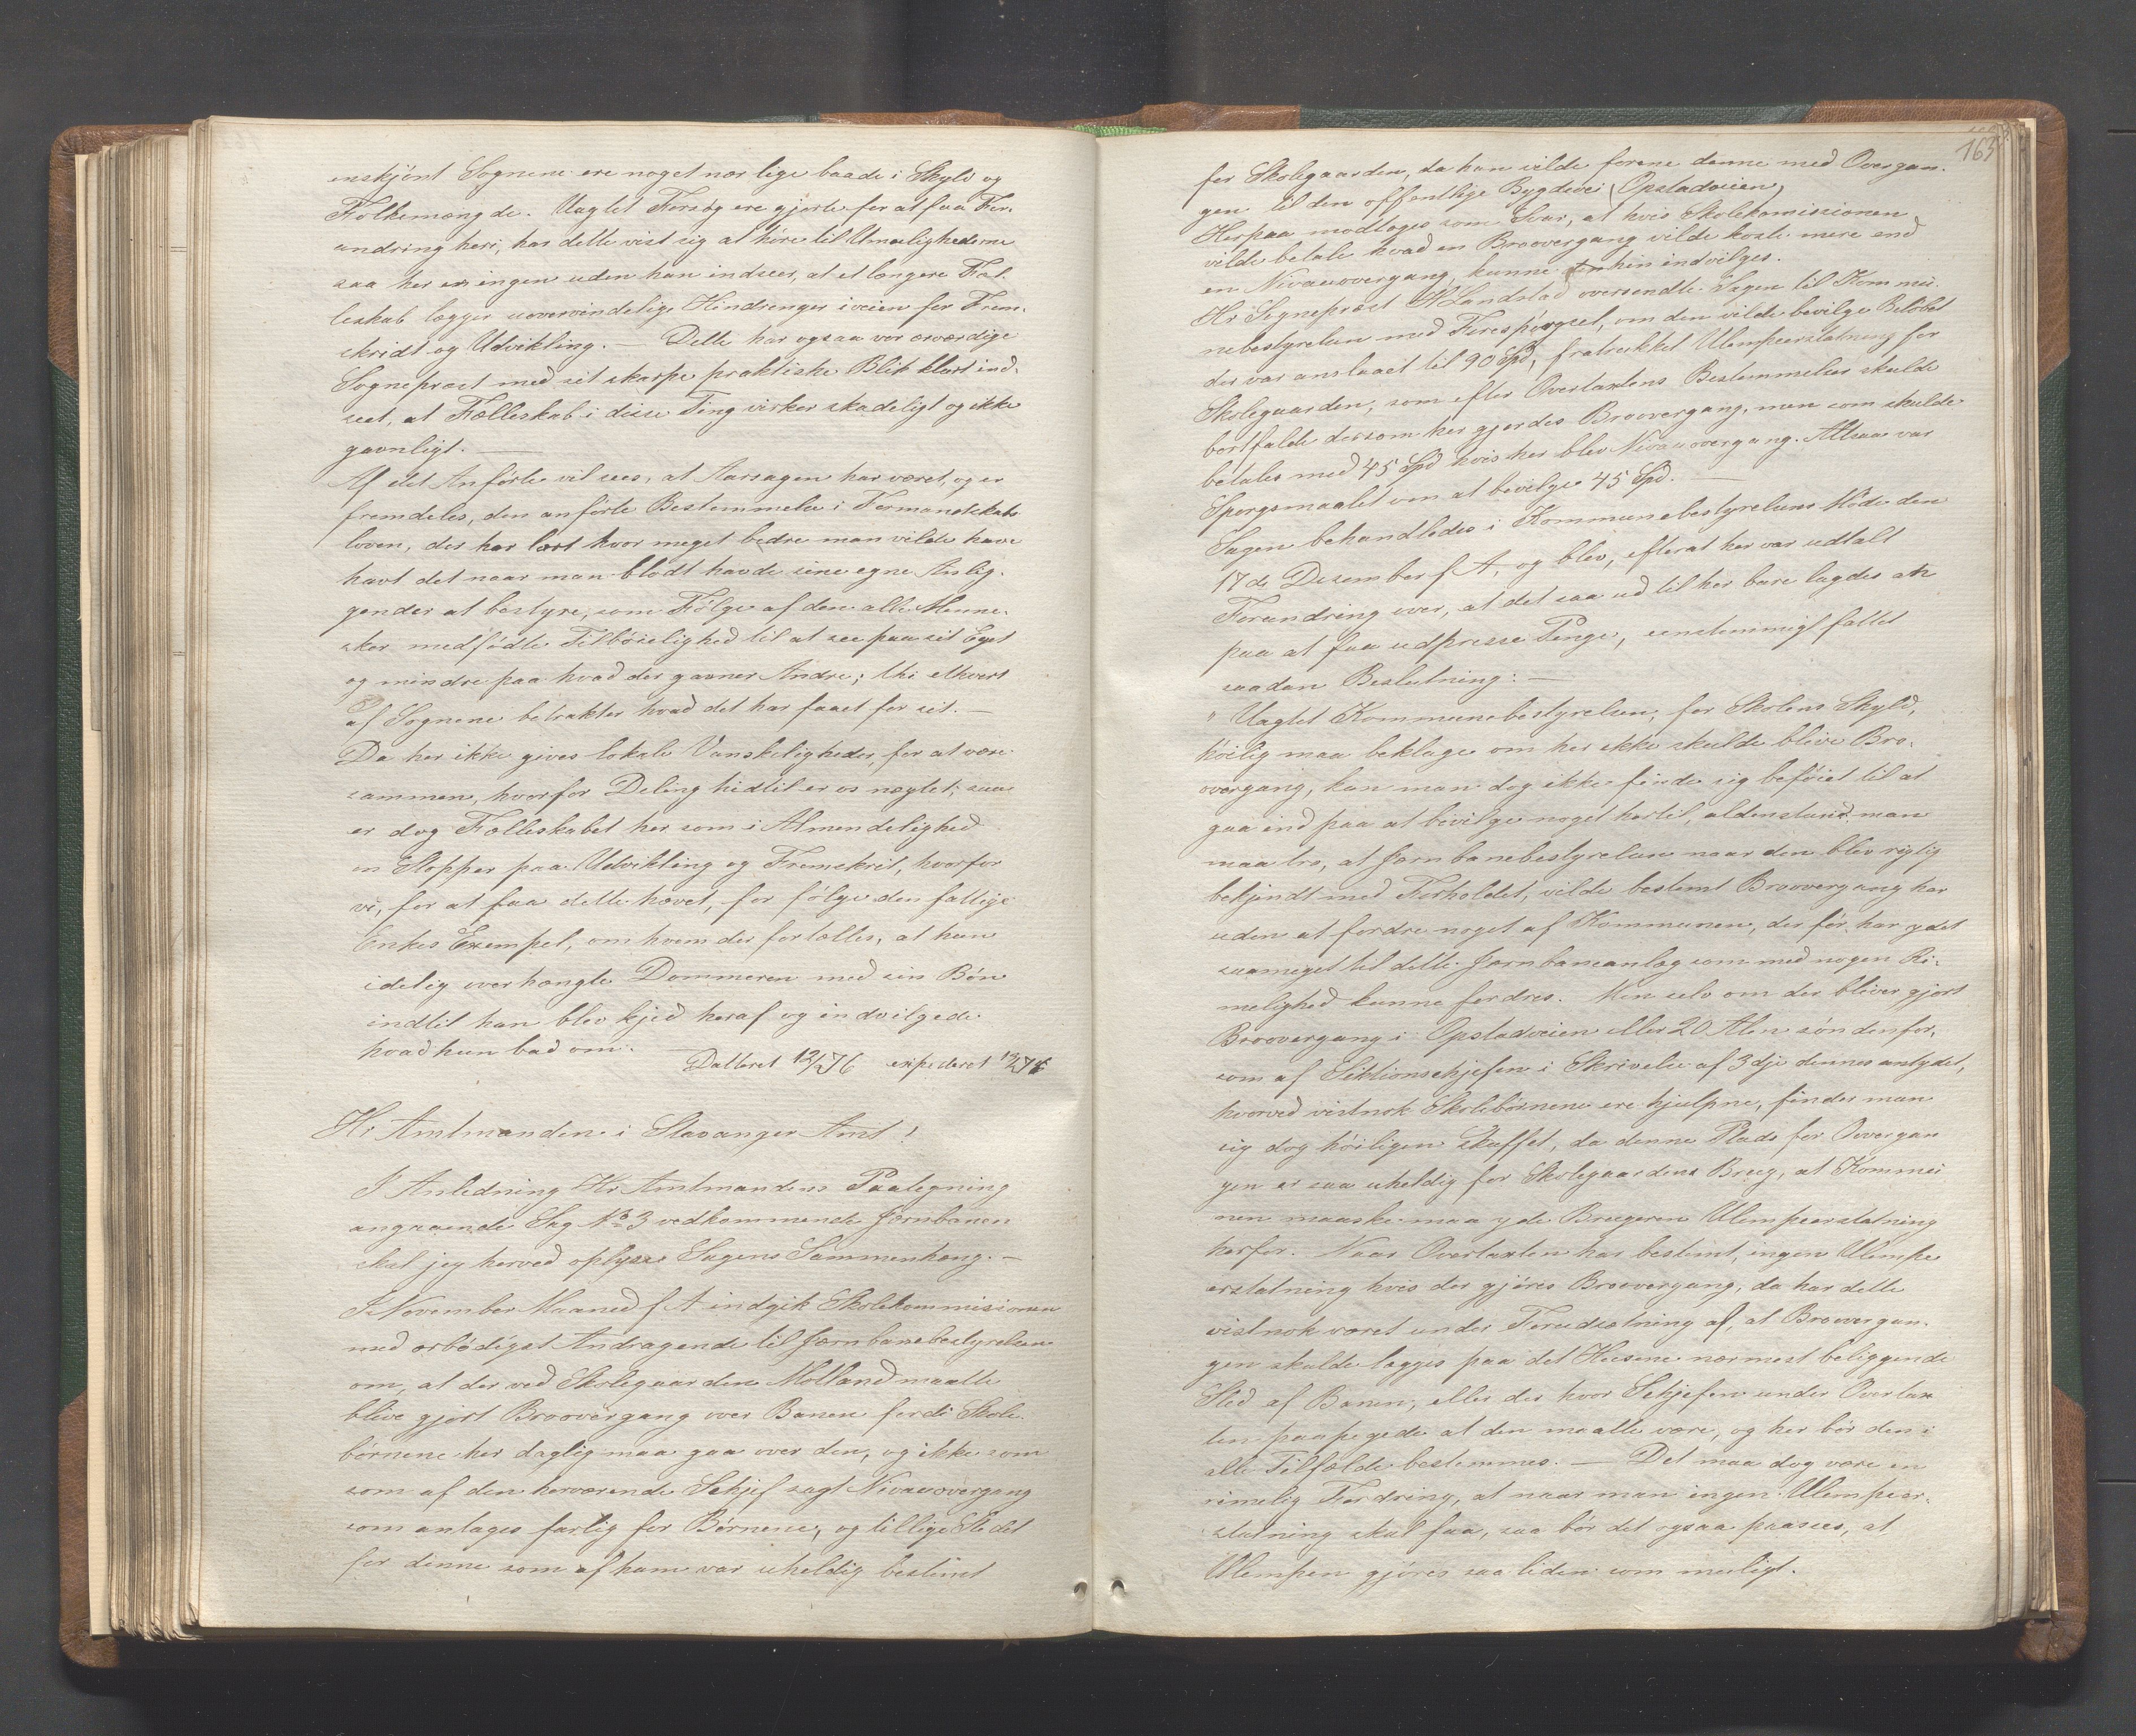 enskjönt Sognene ere noget nær lige baade i Skyld og
Folkemængde. Uagtet Forsög ere gjorte for at faa For-
andring heri, har dette vist sig at höre til Umulighederne
saa her er ingen uden han indseer, at et længere Fæl-
leskab lægger uovervindelige Hindrenger iveien for Frem-
skridt og Udvikling. — Dette har ogsaa vor ærværdige
Sogneprest med sit skarpe praktiske Blik klart ind-
seet, at Fælleskab i disse Ting virker skadeligt og ikke
gavnligt. —
Af det Anförte vil sees, at Aarsagen har været, og er
fremdeles, den anförte Bestemmelse i Formandskabs
loven, der har lært hvor meget bedre man vilde have
havt det naar man blödt havde sine egne Anlig-
gender at bestyre, som Fölge af den alle Menne-
sker medfödte Tilböielighed til at see paa sit Eget
og mindre paa hvad der gavner Andre; thi ethvert
af Sognene betrakter hvad det har faaet for sit. —
Da her ikke gives lokale Vanskeligheder, for at være
sammen, hvorfor Deling hidtil er os nægtet; saa
er dog Fælleskabet her som i Almendelighed
en Stopper paa Udvikling og Fremskrit, hvorfor
vi, for at faa dette hævet, for fölge den fattige
Enkes Exempel, om hvem der fortælles, at hun
idelig overhængte Dommeren med sin Bön
indtil han blev kjed heraf og indvilgede
hvad hun bad om. —
Datteret 12/1 76 expederet 12/1 76
Hr Amtmanden i Stavanger Amt!
I Anledning Hr Amtmandens Paategning
angaaende Sag No 3 vedkommende Jernbanen
skal jeg herved oplyse Sagens Sammenhæng. —
I November Maaned f A indgik Skolekommisionen
med ærbödigst Andragende til Jernbanebestyrelsen
om, at der ved Skolegaarden Motland maatte
blive gjort Broovergang over Banen fordi Skole-
börnene her daglig maa gaa over den, og ikke som
som af den herværende Sekjef sagt Nivauovergang
som antages farlig for Börnene, og tillige Stedet
for denne som af ham var uheldig bestemt
165
for Skolegaarden, da han vilde forene denne med Overgan-
gen til den offentlige Bygdevei (Opstadveien)
Herpaa modtoges som Svar, at hvis Skolekomissionen
vilde betale hvad en Broovergang vilde koste mere end
en Nivauovergang, kunne hin indvilges.
Hr Sogneprest Landstad oversendte Sagen til Kommu-
nebestyrelsen med Forespörgsel, om den vilde bevilge Belöbet
der var anslaaet til 90 Spd, fratrukket Ulempeerstatning for
Skolegaarden, som efter Overtaxtens Bestemmelser skulde
bortfalde dersom her gjordes Broovergang, men som skulde
betales med 45 Spd hvis her blev Nivauovergang. Altsaa var
Spørgsmaalet om at bevilge 45 Spd. —
Sagen behandledes i Kommunebestyrelsens Möde den
17de Desember f A, og blev, efterat her var udtalt
Forundring over, at det saa ud til her bare lagdes an
paa at faa udpresse Penge, eenstemmigt fattet
saadan Beslutning: —
" Uagtet Kommunebestyrelsen, for Skolens Skyld,
höilig maa beklage om her ikke skulde blive Bro-
overgang, kan man dog ikke finde sig beföiet til at
gaa ind paa at bevilge noget hertil, aldenstund man
maa tro, at Jernbanebestyrelsen naar den blev rigtig
bekjendt med Forholdet, vilde bestemt Broovergang her
uden at fordre noget af Kommunen, der för har ydet
saameget til dette Jernbaneanlæg som med nogen Ri-
melighed kunne fordres. Men selv om der bliver gjort
Broovergang i Opstadveien eller 20 Alen söndenfor,
som af Sektionschjefen i Skrivelse af 3dje dennes antydet,
hvorved vistnok Skolebörnene ere hjulpne, finder man
sig dog höiligen skuffet, da denne Plads for Overgan
gen er saa uheldig for Skolegaardens Brug, at Kommu
nen maaske maa yde Brugeren Ulempeerstatning
herfor. Naar Overtaxten har bestemt, ingen Ulempe
erstatning hvis der gjöres Broovergang, da har dette
vistnok været under Forudsætning af, at Broovergan-
gen skulde lægges paa det Husene nærmest beliggende
Sted af Banen, eller der hvor Sekjefen under Overtax
ten paapegede at den maatte være, og her bör den i
alle Tilfælde bestemmes. — Det maa dog være en
rimelig Fordring, at naar man ingen Ulempeer-
statning skal faa, saa bör det ogsaa paasees, at
Ulempen gjöres saa liden som muligt.